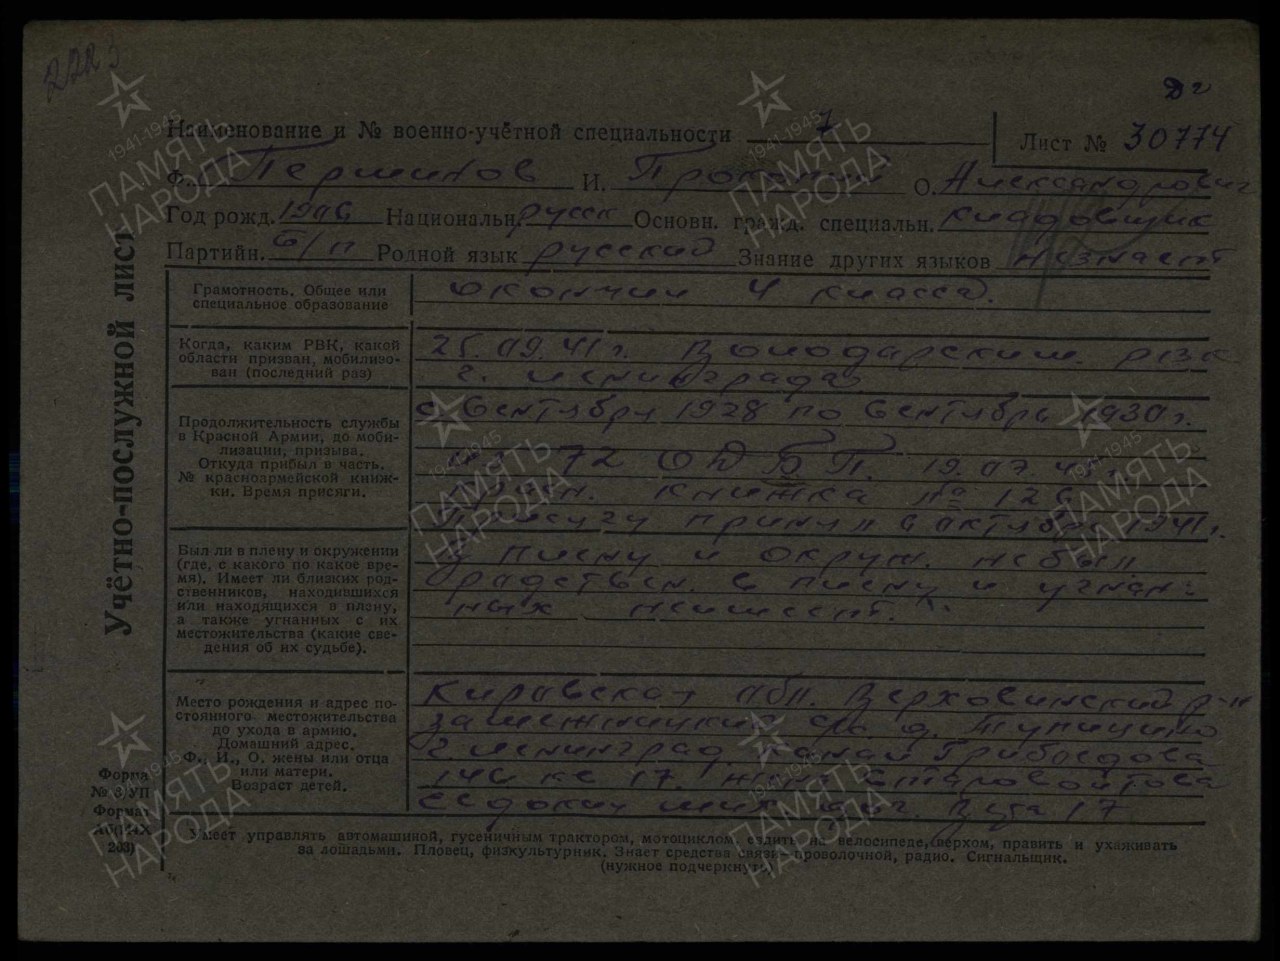 Наименование и № военно-учётной специальности 7
Лист № 30774
Ф. Першинов И. Прокопий О. Александрович
Год рожд. 1906 Национальн. русск Основн. гражд. специальн. кладовщик
Партийн. б/п Родной язык русский Знание других языков незнает
Учётно-послужной лист
Грамотность. Общее или
специальное образование
окончил 4 класса.
Когда, каким РВК, какой
области призван, мобилизо-
ван (последний раз)
25.09.41 г. Володарским рвк
г. Ленинграда
Продолжительность службы
в Красной Армии, до моби-
лизации, призыва.
Откуда прибыл в часть.
№ красноармейской книж-
ки. Время присяги.
с Сентября 1928 по Сентябрь 1930 г.
72 19.07.
книжка № 126
Присягу принял в октябре 1941 г.
Был ли в плену и окружении
(где, с какого по какое вре-
мя). Имеет ли близких род-
ственников, находившихся
или находящихся в плену,
а также угнанных с их
местожительства (какие све-
дения об их судьбе).
в плену и окруж. небыл
родствен. в плену и угнан-
ных неимеет.
Место рождения и адрес по-
стоянного местожительства
до ухода в армию.
Домашний адрес.
Ф., И., О. жены или отца
или матери.
Возраст детей.
Кировская обл. Верховинский р-н
д. Тупицино
г. Ленинград канал Грибоедова
146 кв 17. жена Старовойтова
17
Форма
№ 6/УП
Формат
А6(74Х
203)
Умеет управлять автомашиной, гусеничным трактором, мотоциклом, ездить на велосипеде, верхом, править и ухаживать
за лошадьми. Пловец, физкультурник. Знает средства связи: проволочной, радио. Сигнальщик.
(нужное подчеркнуть)
1941-1945
ПАМЯТЬ
НАРОДА
1941-1945
ПАМЯТЬ
НАРОДА
1941-1945
ПАМЯТЬ
НАРОДА
1941-1945
ПАМЯТЬ
НАРОДА
1941-1945
ПАМЯТЬ
НАРОДА
1941-1945
ПАМЯТЬ
НАРОДА